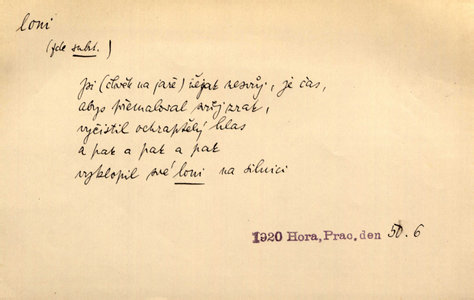 loni
(zde subst.)
jsi (člověk na jaře) nějak nesvůj, je čas,
abys přemaloval svůj zrak,
vyčistil ochraptělý hlas
a pak a pak a pak
vyklopil své loni na silnici
1920 Hora, Prac. den 50. 6